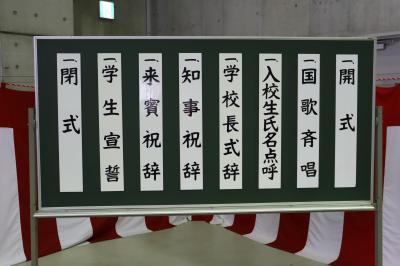 一、開式
一、国歌斉唱
一、入校生氏名点呼
一、学校長式辞
一、知事祝辞
一、来賓祝辞
一、学生宣誓
一、閉式